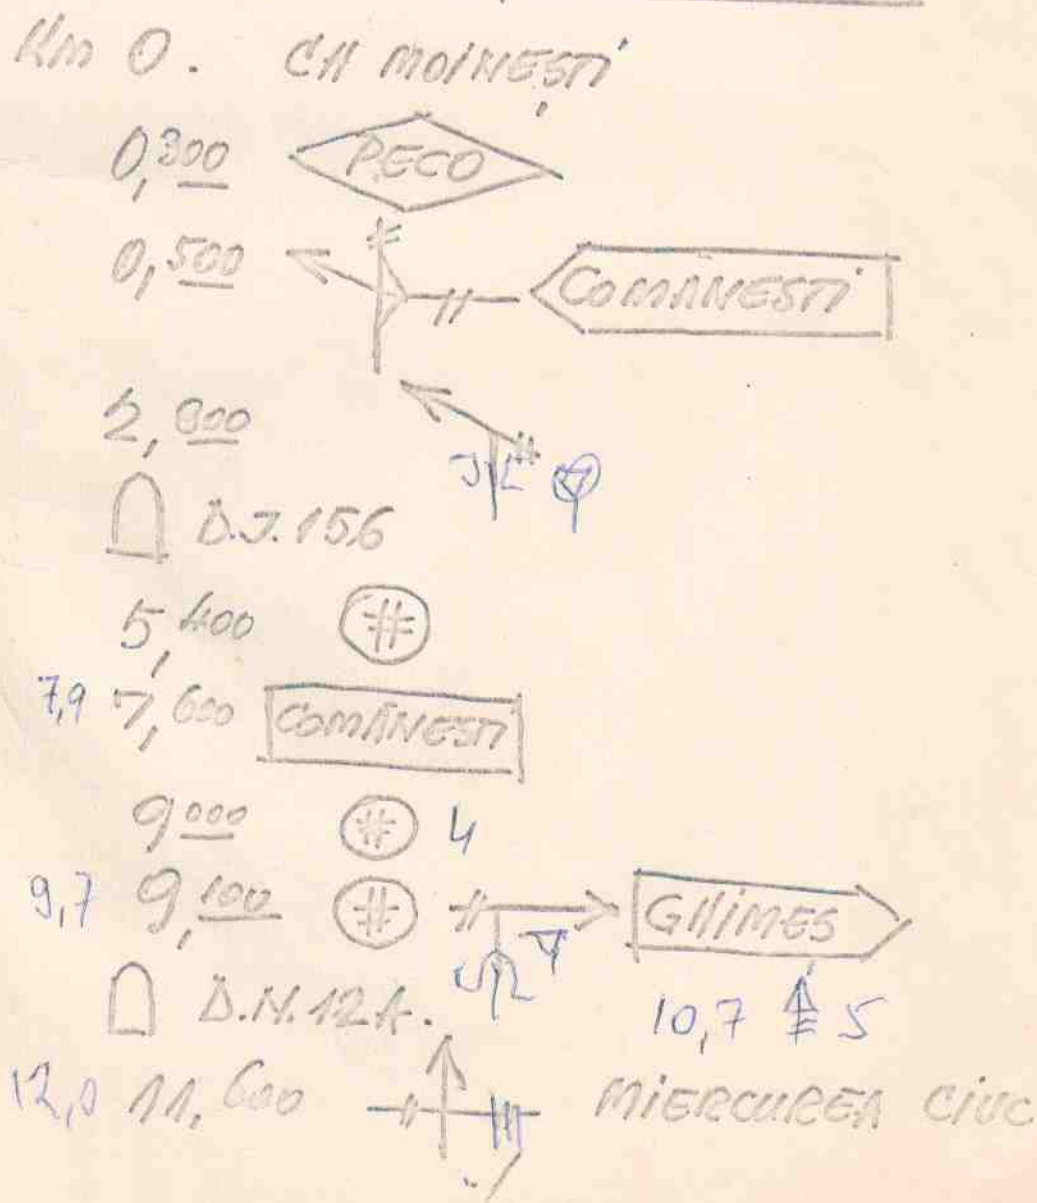 Km 0. CH MOINEȘTI
0,300 PECO
0,500 COMANESTI
2,800
D.J. 156
5,400
7,9 7,600 COMĂNESTI
9000 4
9,7 9,100 GHIMES
D.N. 12A.
10,7 5
12,0 11,600 MIERCUREA CIUC